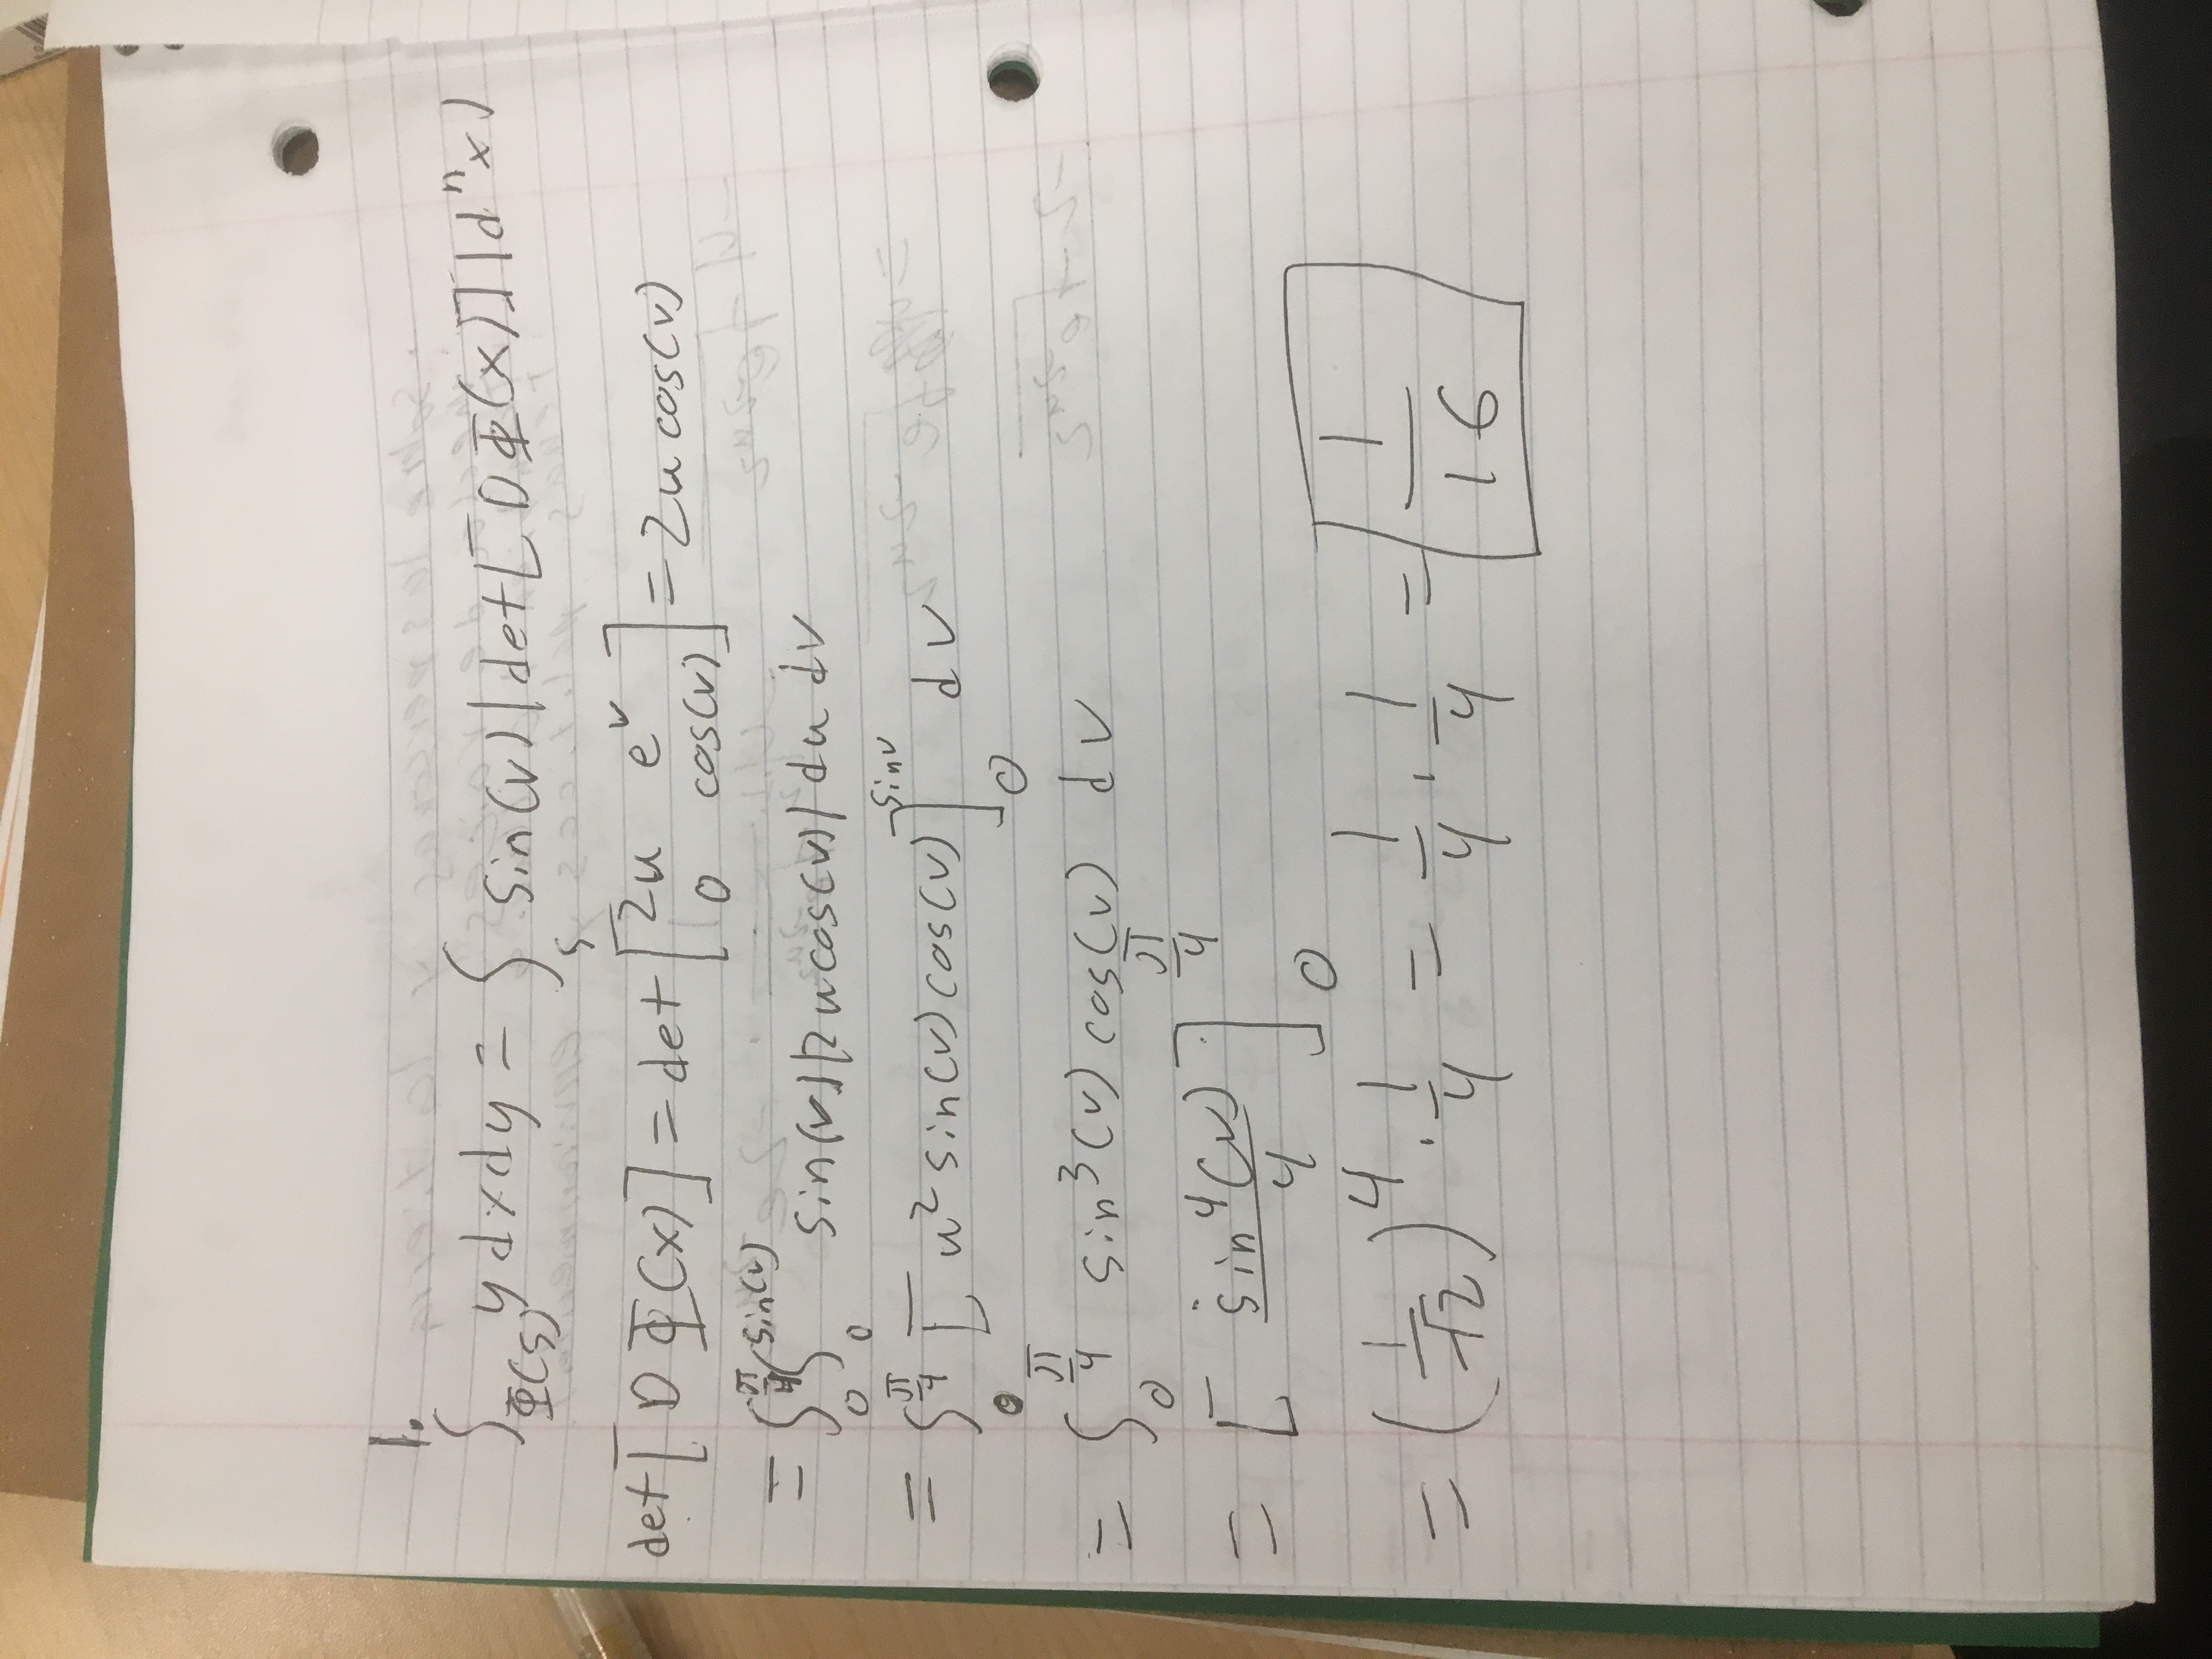 1.
∫_Φ(S) y dx dy = ∫_S sin(v) |det[DΦ(x)]| dⁿx)
det[DΦ(x)] = det [2u e^v; 0 cos(v)] = 2u cos(v)
= ∫_0^(π/4) ∫_0^(sin(v)) sin(v) |2u cos(v)| du dv
= ∫_0^(π/4) [u² sin(v) cos(v)]_0^(sin v) dv
= ∫_0^(π/4) sin³(v) cos(v) dv
= [sin⁴(v)/4]_0^(π/4)
= (1/√2)⁴ · 1/4 = 1/4 · 1/4 = 1/16